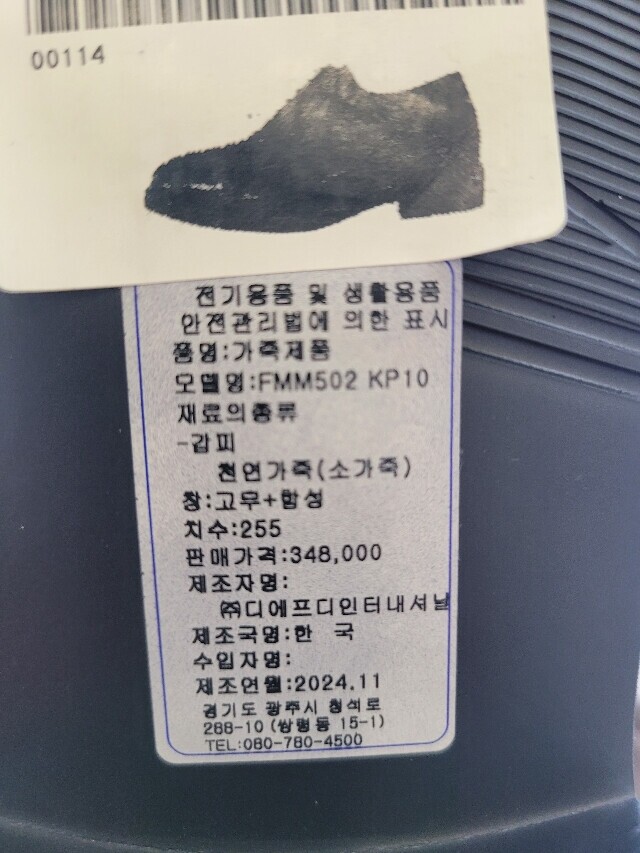 00114
전기용품 및 생활용품
안전관리법에 의한 표시
품명:가죽제품
모델명:FMM502 KP10
재료의종류
-갑피
천연가죽(소가죽)
창:고무+합성
치수:255
판매가격:348,000
제조자명:
㈜디에프디인터내셔날
제조국명:한 국
수입자명:
제조연월:2024.11
경기도 광주시 청석로
288-10 (쌍령동 15-1)
TEL:080-780-4500